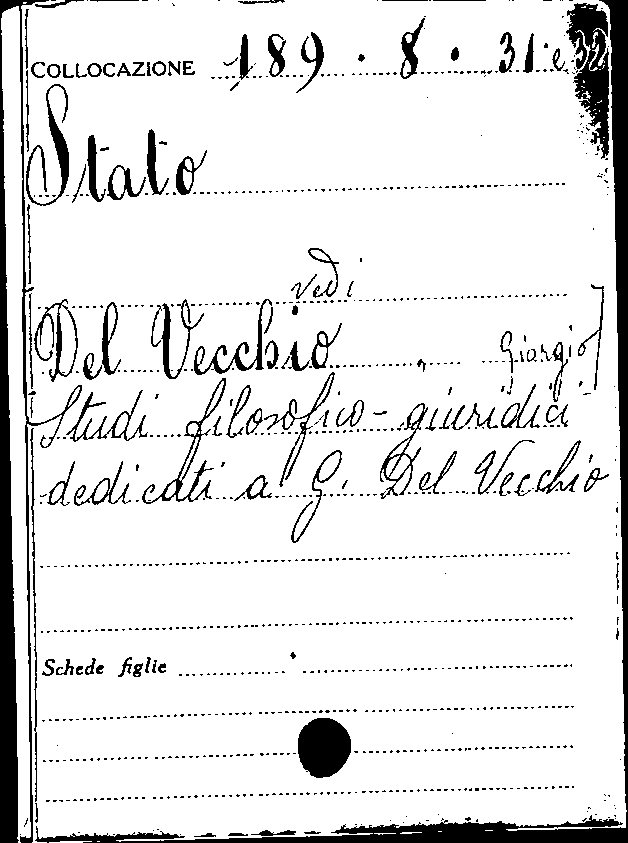 COLLOCAZIONE 189 . 8 . 31 e 32
Stato
vedi
Del Vecchio , Giorgio]
Studi filosofico-giuridici
dedicati a G. Del Vecchio
Schede figlie